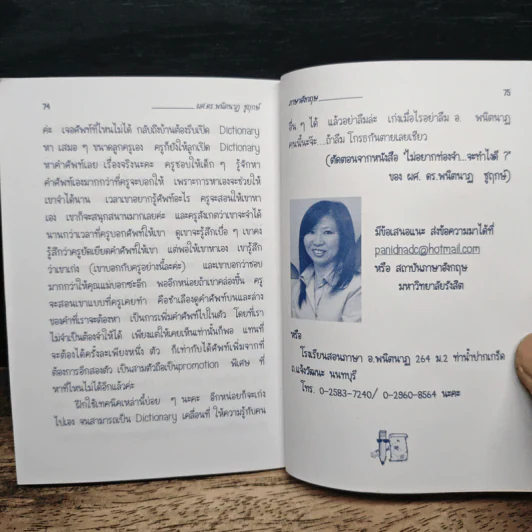 74 ผศ.ดร.พนิตนาฏ ชูฤกษ์
ค่ะ เจอศัพท์ที่ไหนไม่ได้ กลับถึงบ้านต้องรีบเปิด Dictionary
หา เสมอ ๆ ขนาดลูกครูเอง ครูก็ยังให้ลูกเปิด Dictionary
หาคำศัพท์เอง เรื่องจริงนะคะ ครูชอบให้เด็ก ๆ รู้จักหา
คำศัพท์เองมากกว่าที่ครูจะบอกให้ เพราะการหาเองจะช่วยให้
เขาจำได้นาน เวลาเขาอยากรู้ศัพท์อะไร ครูจะสอนให้เขาหา
เอง เขาก็จะสนุกสนานมากเลยค่ะ และครูสังเกตว่าเขาจะจำได้
นานกว่าเวลาที่ครูบอกศัพท์ให้เขา ดูเขาจะรู้สึกเบื่อ ๆ เขาคง
รู้สึกว่าครูยัดเยียดคำศัพท์ให้เขา แต่พอให้เขาหาเอง เขารู้สึก
ว่าเขาเก่ง (เขาบอกกับครูอย่างนี้ละค่ะ) และเขาบอกว่าชอบ
มากกว่าให้คุณแม่บอกซะอีก พออีกหน่อยถ้าเขาคล่องขึ้น ครู
จะสอนเขาแบบที่ครูเคยทำ คือชำเลืองดูคำศัพท์บนและล่าง
ของคำที่เราจะต้องหา เป็นการเพิ่มคำศัพท์ไปในตัว โดยที่เรา
ไม่จำเป็นต้องจำให้ได้ เพียงแต่ให้เคยเห็นเท่านั้นก็พอ แทนที่
จะต้องได้ครั้งละเพียงหนึ่ง ตัว ก็เท่ากับได้ศัพท์เพิ่มจากที่
ต้องการอีกสองตัว เป็นสามตัวถือเป็นpromotion พิเศษ ที่
หาที่ไหนไม่ได้อีกแล้วค่ะ
ฝึกใช้เทคนิคเหล่านี้บ่อย ๆ นะคะ อีกหน่อยก็จะเก่ง
ไปเอง จนสามารถเป็น Dictionary เคลื่อนที่ ให้ความรู้กับคน
ภาษาอังกฤษ 75
อื่น ๆ ได้ แล้วอย่าลืมล่ะ เก่งเมื่อไรอย่าลืม อ. พนิตนาฏ
คนนี้นะจ๊ะ...ถ้าลืม โกรธกันตายเลยเชียว
(ตัดตอนจากหนังสือ "ไม่อยากท่องจำ...จะทำไงดี ?"
ของ ผศ. ดร.พนิตนาฏ ชูฤกษ์)
มีข้อเสนอแนะ ส่งข้อความมาได้ที่
panidnadc@hotmail.com
หรือ สถาบันภาษาอังกฤษ
มหาวิทยาลัยรังสิต
หรือ
โรงเรียนสอนภาษา อ.พนิตนาฏ 264 ม.2 ท่าน้ำปากเกร็ด
ถ.แจ้งวัฒนะ นนทบุรี
โทร. 0-2583-7240/ 0-2960-8564 นะคะ